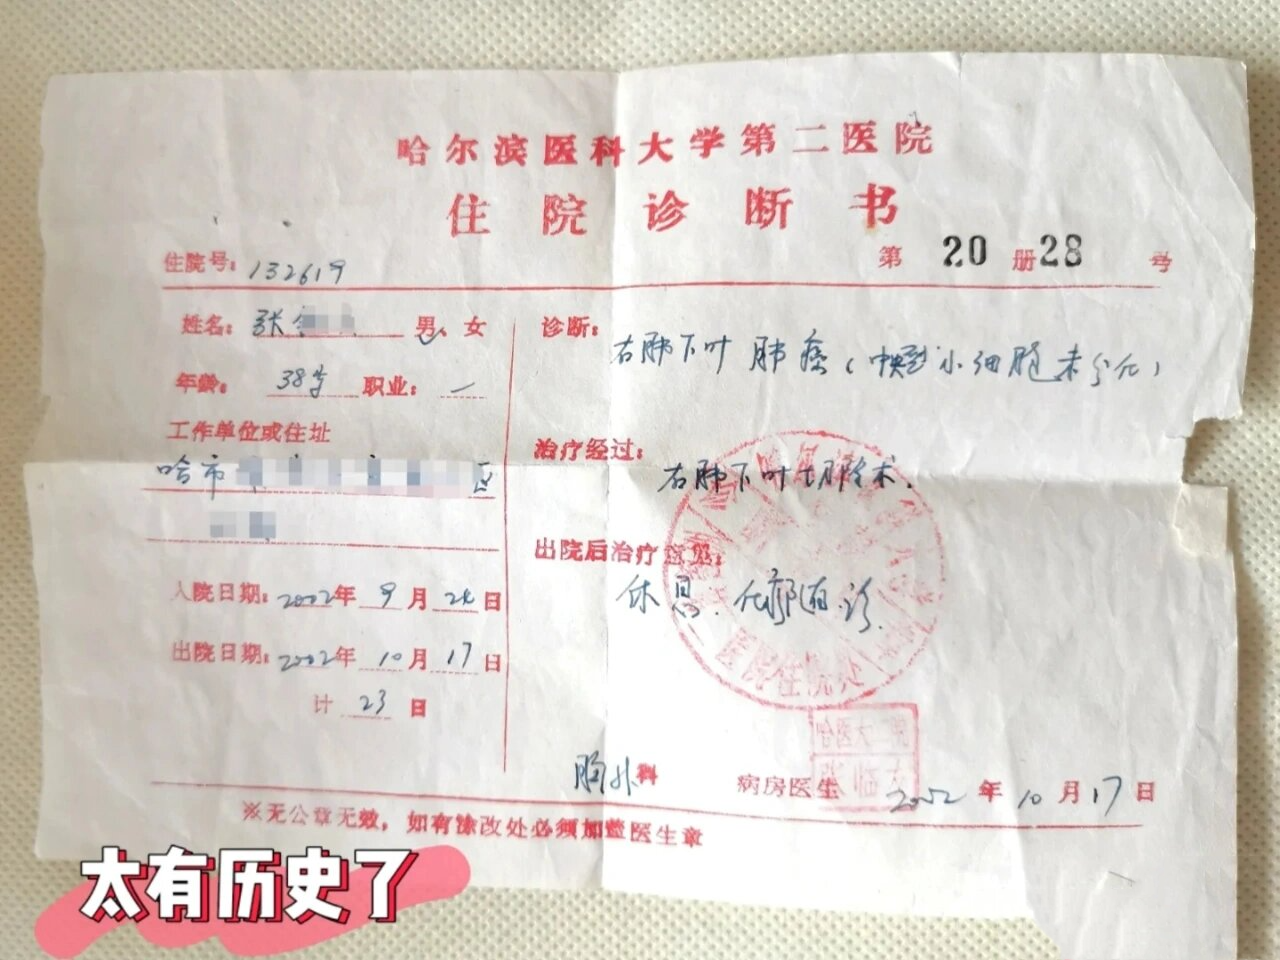 哈尔滨医科大学第二医院
住院诊断书
第 20 册 28 号
住院号：132619
姓名：张 男、女
年龄：38岁 职业：一
工作单位或住址
哈市 区
入院日期：2002年 9月 24日
出院日期：2002年 10月 17日
计 23 日
诊断：
右肺下叶 肺癌（中央型 小细胞未分化）
治疗经过：
右肺下叶切除术.
出院后治疗意见：
休息. 化疗随诊.
医院住院处
哈医大二院
张临友
胸外科 病房医生 2002年 10月 17日
※无公章无效，如有涂改处必须加盖医生章
太有历史了